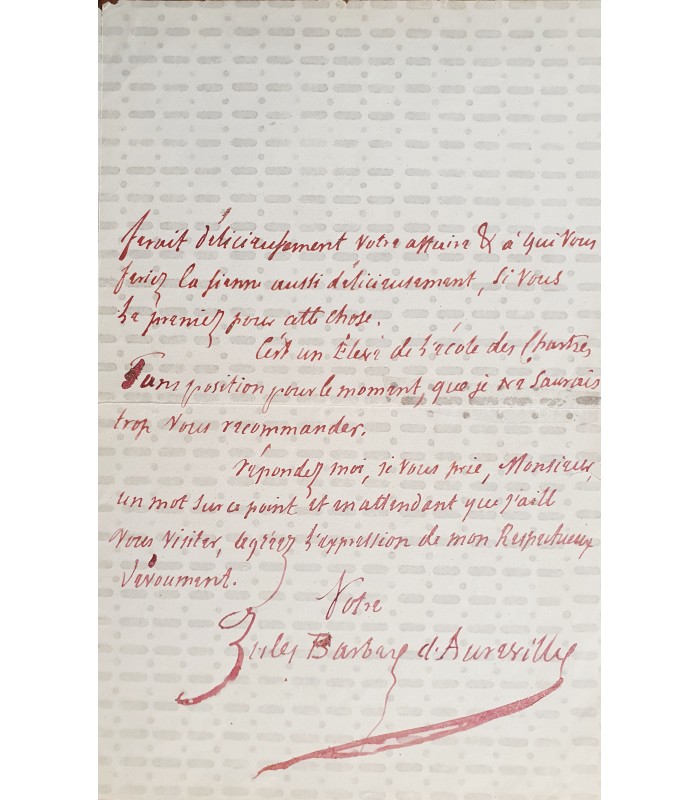 ferait délicieusement votre affaire & à qui vous
feriez la sienne aussi délicieusement, si vous
le preniez pour cette chose.
C'est un Élève de l'école des Chartres
sans position pour le moment, que je ne saurais
trop vous recommander.
répondez moi, je vous prie, Monsieur,
un mot sur ce point et en attendant que j'aille
vous visiter, agréez l'expression de mon Respectueux
dévoument.
Votre
Jules Barbey d'Aurevilly